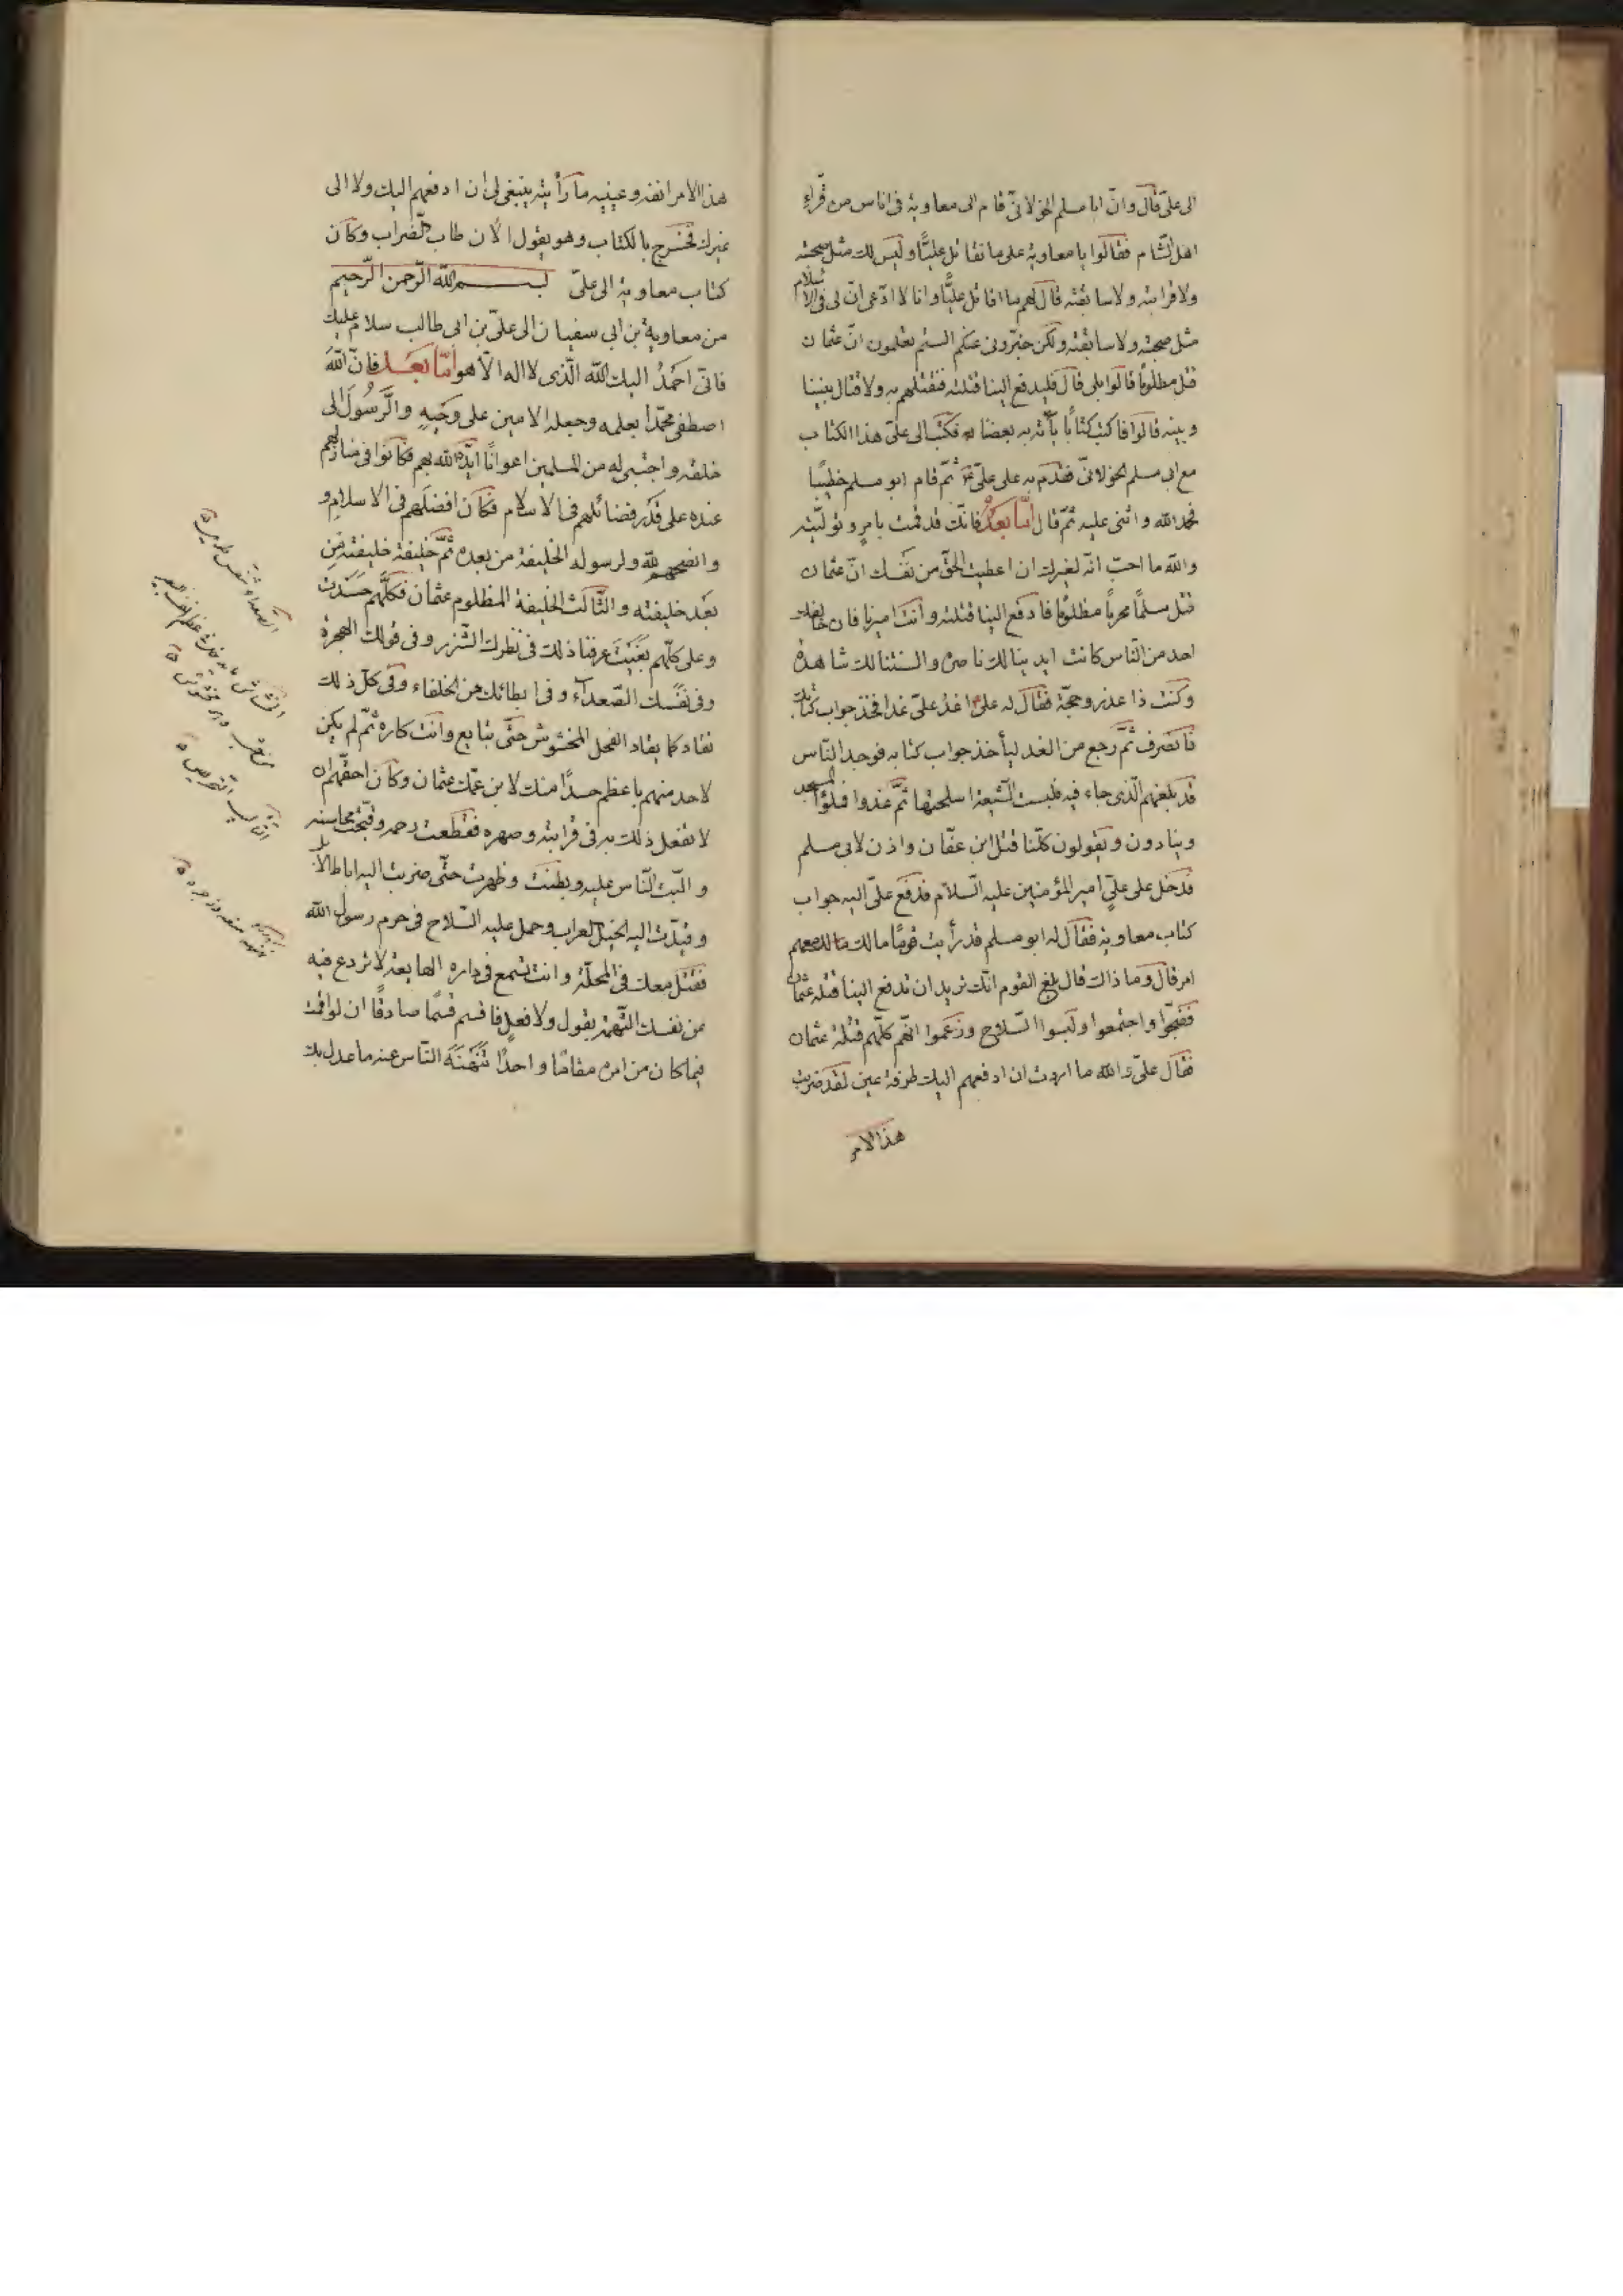 الى علىّ قال وانّ ابا مسلم الخولانىّ قام الى معاوية فى اناس من قرّاء
اهل الشّام فقالوا يا معاوية على ما تقاتل عليّا وليس لك مثل صحبته
ولا قرابته ولا سابقته قال لهم ما اقاتل عليّا وانا لا ادّعى انّ لى فى الاسلام
مثل صحبته ولا سابقته ولكن خبّرونى عنكم الستم تعلمون انّ عثمان
قتل مظلوما قالوا بلى قال فليدفع الينا قتلته فنقتلهم به ولا قتال بيننا
وبينه قالوا فاكتب كتابا يأته به بعضنا فكتب الى علىّ هذا الكتاب
مع ابى مسلم الخولانىّ فقدم به على علىّ ثمّ قام ابو مسلم خطيبا
فحمد الله واثنى عليه ثمّ قال امّا بعد فانّك قد قمت بامر وتولّيته
والله ما احبّ انّه لغيرك ان اعطيت الحقّ من نفسك انّ عثمان
قتل مسلما محرما مظلوما فادفع الينا قتلته وانت اميرنا فان خالفك
احد من النّاس كانت ايدينا لك ناصرة والسنتنا لك شاهدة
وكنت ذا عذر وحجّة فقال له علىّ اغد علىّ غدا فخذ جواب كتابك
فانصرف ثمّ رجع من الغد ليأخذ جواب كتابه فوجد النّاس
قد بلغهم الّذى جاء فيه فلبست الشّيعة اسلحتها ثمّ غدوا فملؤا المسجد
وينادون ويقولون كلّنا قتل ابن عفّان واذن لابى مسلم
فدخل على علىّ امير المؤمنين عليه السّلام فدفع علىّ اليه جواب
كتاب معاوية فقال له ابو مسلم قد رأيت قوما مالك معهم
امر قال وما ذاك قال بلغ القوم انّك تريد ان تدفع الينا قتلة عثمان
فضجّوا واجتمعوا ولبسوا السّلاح وزعموا انّهم كلّهم قتلة عثمان
فقال علىّ والله ما اردت ان ادفعهم اليك طرفة عين لقد ضربت
هذا الامر
هذا الامر انفه وعينيه ما رأيته ينبغى لى ان ادفعهم اليك ولا الى
غيرك فخرج بالكتاب وهو يقول الان طاب الضّراب وكان
كتاب معاوية الى علىّ بسم الله الرّحمن الرّحيم
من معاوية بن ابى سفيان الى علىّ بن ابى طالب سلام عليك
فانّى احمد اليك الله الّذى لا اله الّا هو امّا بعد فانّ الله
اصطفى محمّدا بعلمه وجعله الامين على وحيه والرّسول الى
خلقه واجتبى له من المسلمين اعوانا ايّده الله بهم فكانوا فى منازلهم
عنده على قدر فضائلهم فى الاسلام فكان افضلهم فى الاسلام و
وانصحهم لله ولرسوله الخليفة من بعده ثمّ خليفة خليفته من
بعد خليفته والثّالث الخليفة المظلوم عثمان فكلّهم حسدت
وعلى كلّهم بغيت عرفنا ذلك فى نظرك الشّزر وفى قولك الهجرة
وفى نفسك الصّعداء وفى ابطائك عن الخلفاء وفى كلّ ذلك
تقاد كما يقاد الفحل المخشوش حتّى تبايع وانت كاره ثمّ لم يكن
لاحد منهم باعظم حسدا منك لابن عمّك عثمان وكان احقّهم ان
لا تفعل ذلك به فى قرابته وصهره فقطعت رحمه وقبّحت محاسنه
والّبت النّاس عليه وبطنت وظهرت حتّى ضربت اليه اباط الابل
وقيدت اليه الخيل العراب وحمل عليه السّلاح فى حرم رسول الله
فقتل معك فى المحلّة وانت تسمع فى داره الهايعة لا تردع فيه
عن نفسك التّهمة بقول ولا فعل فاقسم قسما صادقا ان لو اقمت
فيما كان من امره مقاما واحدا تنهنه النّاس عنه ما عدل بك